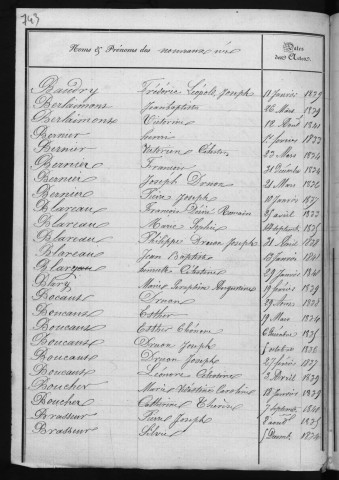 743
Noms & Prénoms des nouveaux nés
Dates des Actes
Baudry Frédéric Léopold Joseph 11 Janvier 1839
Berlaimont Jean Baptiste 26 Mars 1839
Berlaimont Victorine 12 Août 1841
Bernier 1er février 1833
Bernier Victorien Célestin 23 Mars 1834
Bernier François 31 Décembre 1834
Bernier Joseph Druon 21 Mars 1836
Bernier Pierre Joseph 10 Janvier 1837
Blareau François Désiré Romain 25 avril 1833
Blareau Marie Sophie 14 septembre 1835
Blareau Philippe Druon Joseph 21 Avril 1838
Blareau Jean Baptiste 13 Janvier 1841
Célestine 29 Janvier 1841
Blary Marie Josephine Augustine 19 février 1839
Bocaut Druon 29 1832
Boucaut Esther 19 Mars 1834
Boucaut Esther 6 1835
Boucaut Druon Joseph 5 octobre 1836
Boucaut Druon Joseph 27 février 1837
Boucaut Léonore Célestine 2 Avril 1839
Boucher Marie Christine Caroline 18 Janvier 1839
Boucher Catherine Thérèse 7 septembre 1840
Brasseur Pierre Joseph 2 avril 1835
Brasseur Silvie 1834